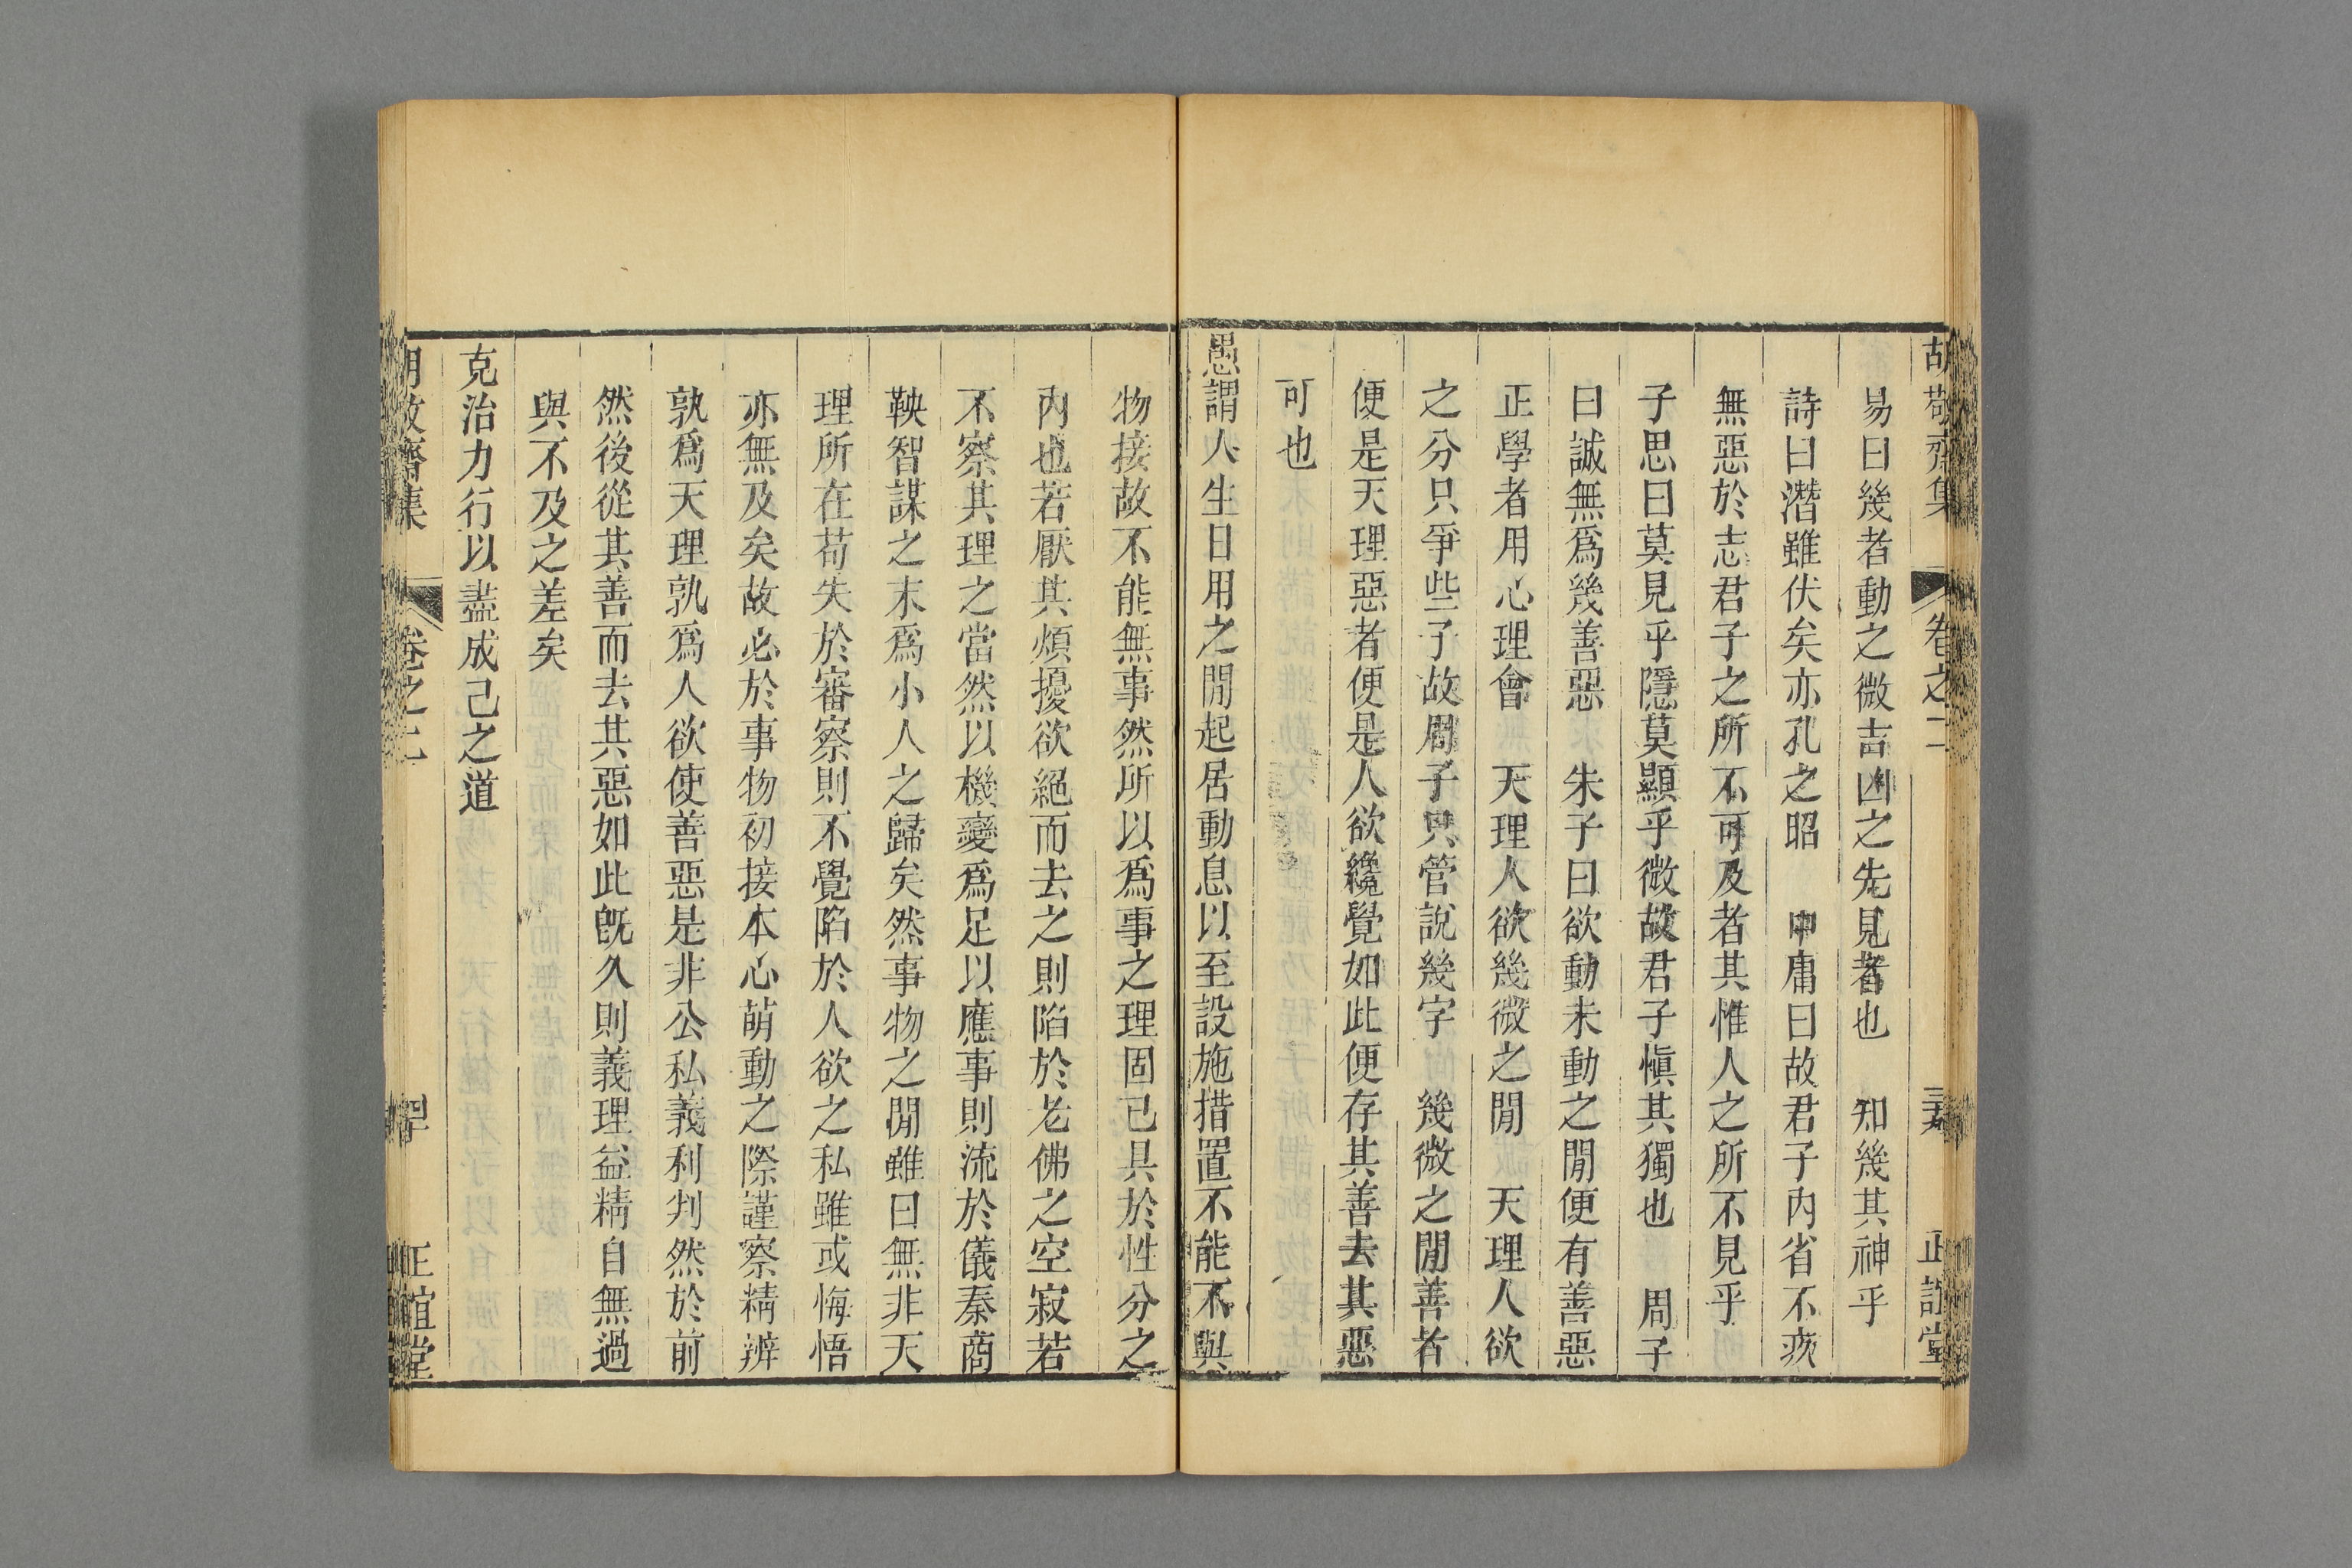 胡敬齋集 卷之二 正誼堂
易曰幾者動之微吉凶之先見者也 知幾其神乎
詩曰潛雖伏矣亦孔之昭 中庸曰故君子內省不疚
無惡於志君子之所不可及者其惟人之所不見乎
子思曰莫見乎隱莫顯乎微故君子愼其獨也 周子
曰誠無爲幾善惡 朱子曰欲動未動之閒便有善惡
正學者用心理會 天理人欲幾微之閒 天理人欲
之分只爭些子故周子只管說幾字 幾微之閒善者
便是天理惡者便是人欲纔覺如此便存其善去其惡
可也
愚謂人生日用之閒起居動息以至設施措置不能不與
物接故不能無事然所以爲事之理固已具於性分之
內也若厭其煩擾欲絕而去之則陷於老佛之空寂若
不察其理之當然以機變爲足以應事則流於儀秦商
鞅智謀之末爲小人之歸矣然事物之閒雖曰無非天
理所在苟失於審察則不覺陷於人欲之私雖或悔悟
亦無及矣故必於事物初接本心萌動之際謹察精辨
孰爲天理孰爲人欲使善惡是非公私義利判然於前
然後從其善而去其惡如此旣久則義理益精自無過
與不及之差矣
克治力行以盡成己之道
胡敬齋集 卷之二 正誼堂